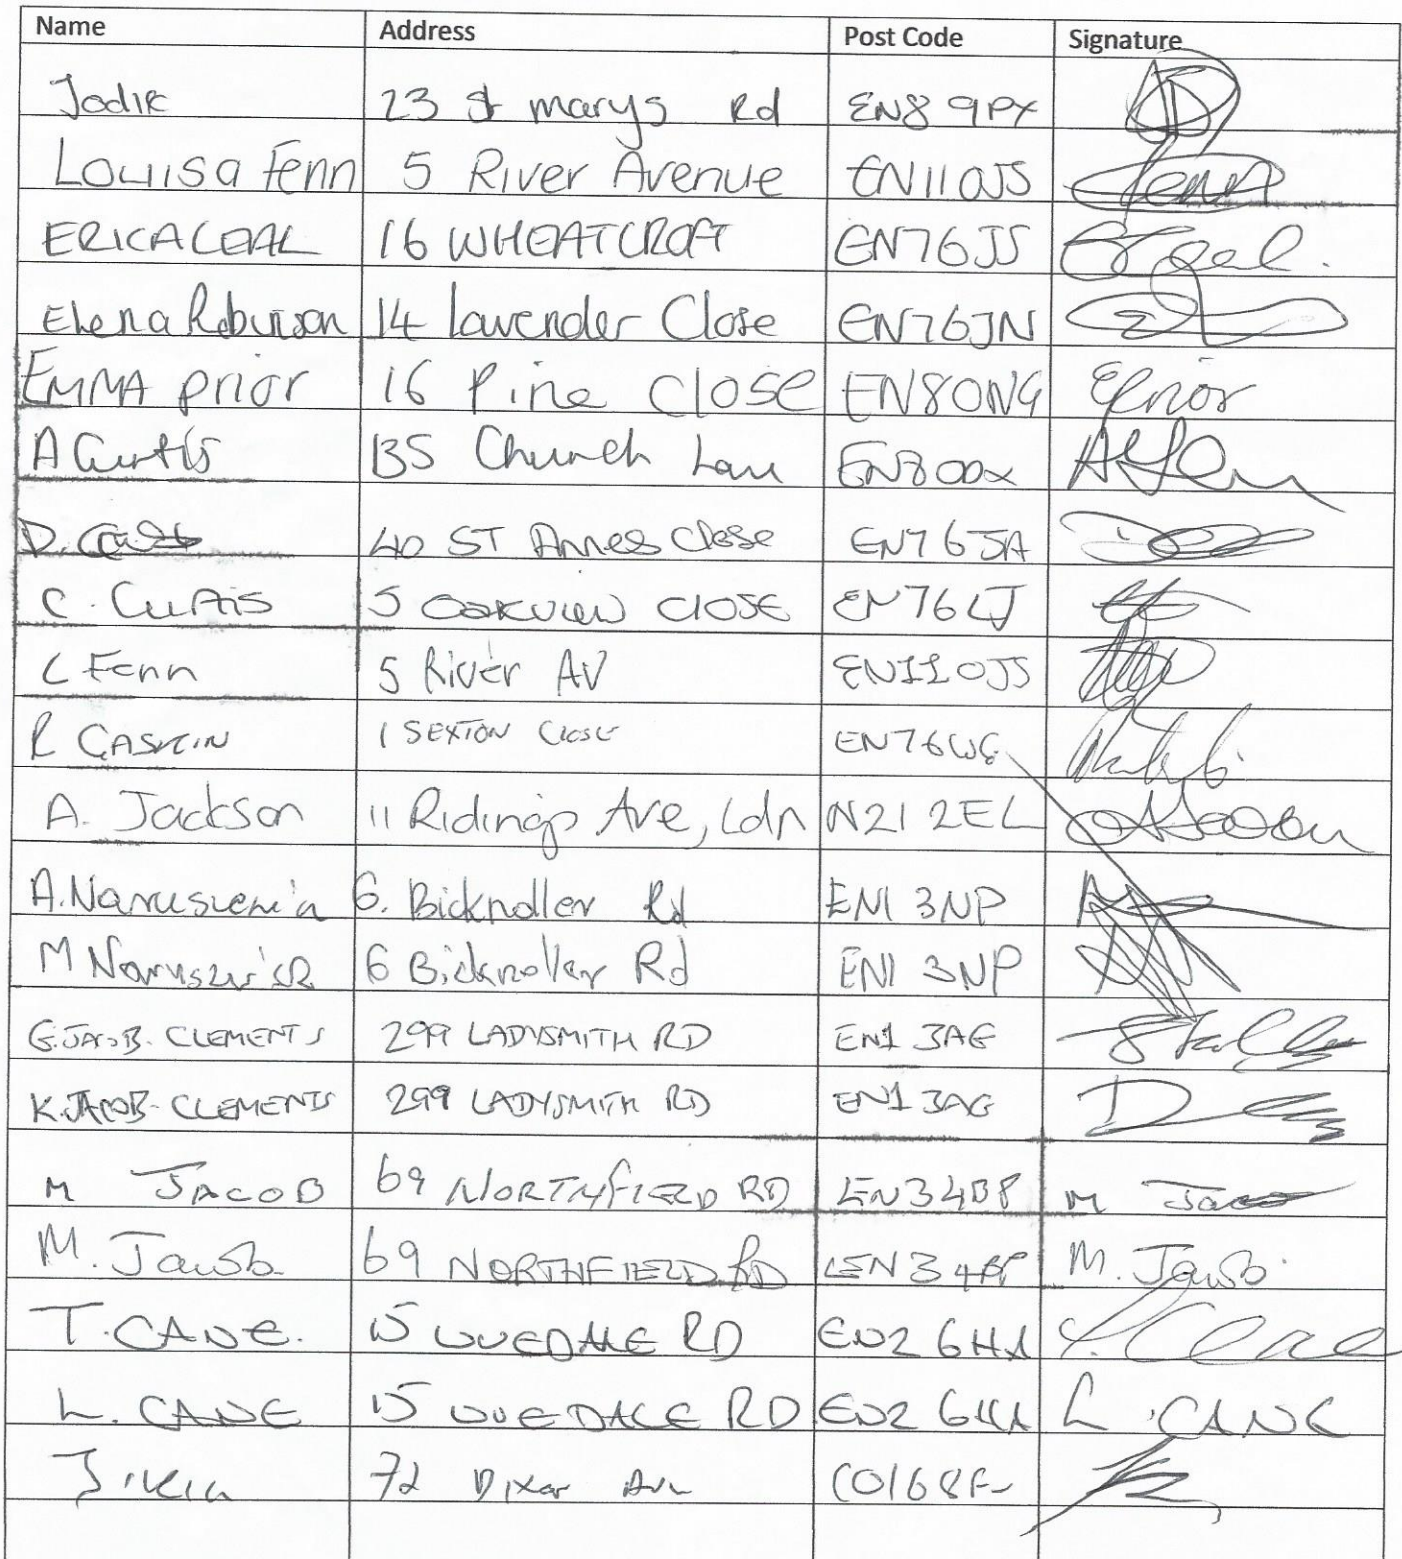 Name Address Post Code Signature
Jodie 23 St marys Rd EN8 9PX
Louisa Fenn 5 River Avenue EN11 0JS Fenn
ERICA CEAL 16 WHEATCROFT EN76JS
Elena Robinson 14 lavender Close EN76JN
EMMA prior 16 Pine Close EN80NG EPrior
A Curtis 135 Church Lane EN8 0DX
D. 40 ST Annes close EN7 6JA
C. Curtis 5 OAKVIEW CLOSE EN76LJ
L Fenn 5 River AV EN11 0JS
R GASKIN 1 SEXTON CLOSE EN76WG
A. Jackson 11 Ridings Ave, Ldn N21 2EL
A. 6. Bicknoller Rd EN1 3NP
M 6 Bicknoller Rd EN1 3NP
G. JACOB-CLEMENTS 299 LADYSMITH RD EN1 3AG
K. JACOB-CLEMENTS 299 LADYSMITH RD EN1 3AG
M JACOB 69 NORTHFIELD RD EN3 4BP M Jacob
M. Jacob 69 NORTHFIELD RD EN3 4BP M. Jacob
T. CANE. 15 UVEDALE RD EN2 6HA T. Cane
L. CANE 15 UVEDALE RD EN2 6HA L. CANE
72 Dixon Ave